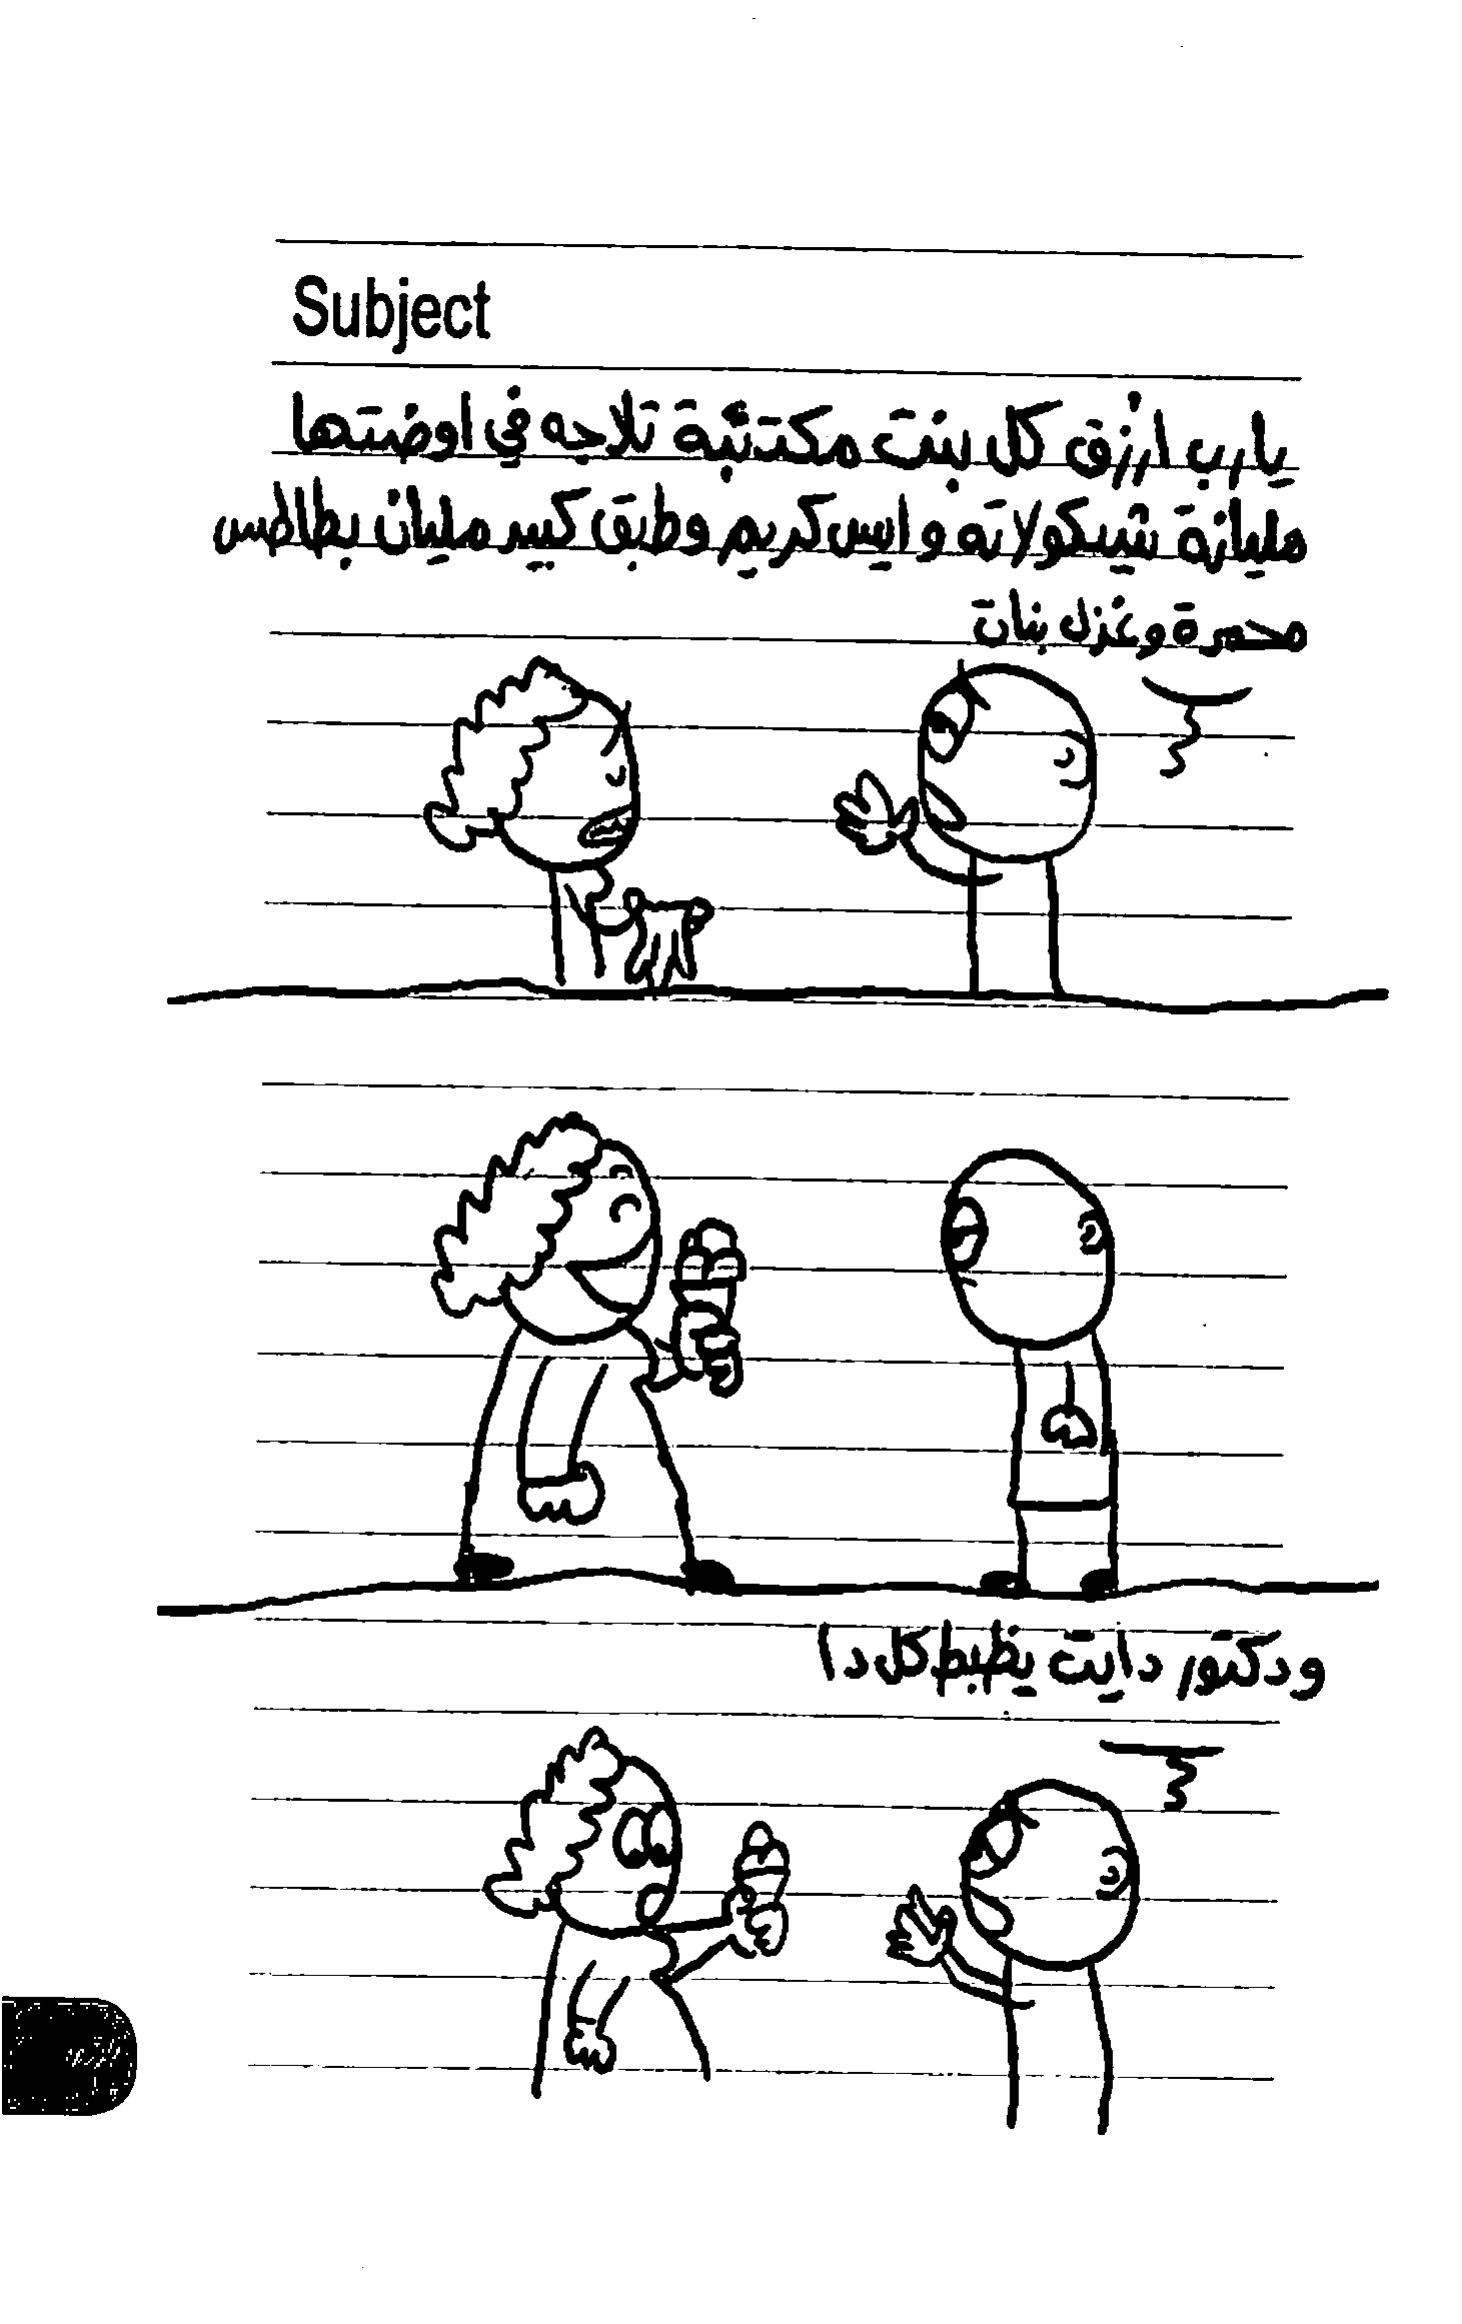 Subject
يارب ارزق كل بنت مكتئبة تلاجه في اوضتها
مليانة شيكولاته و ايس كريم وطبق كبير مليان بطاطس
محمرة وغزل بنات
ودكتور دايت يظبط كل دا